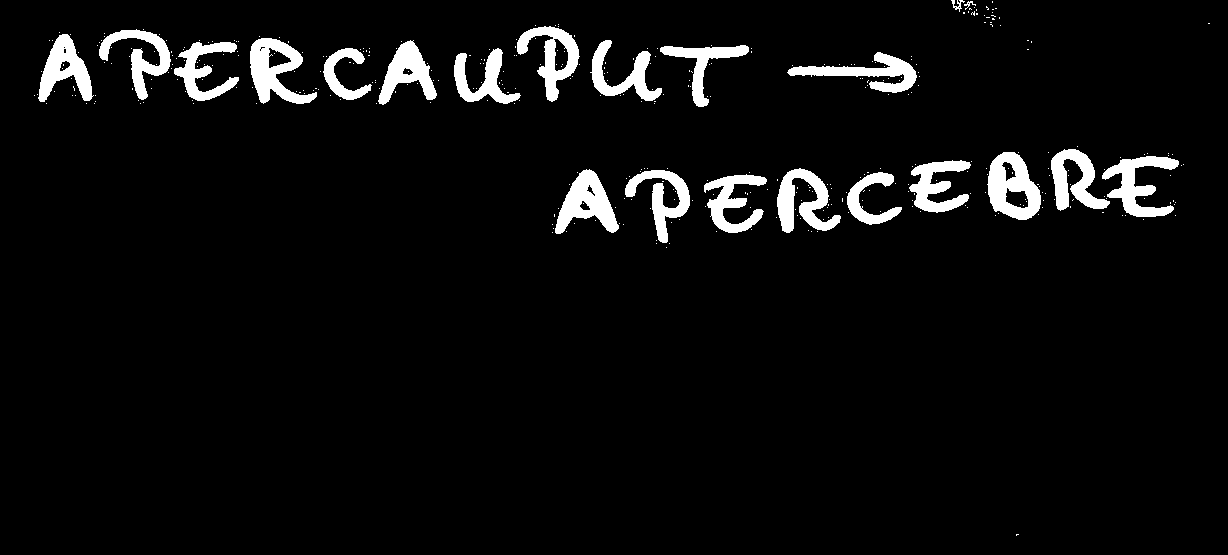 APERCAUPUT →
APERCEBRE